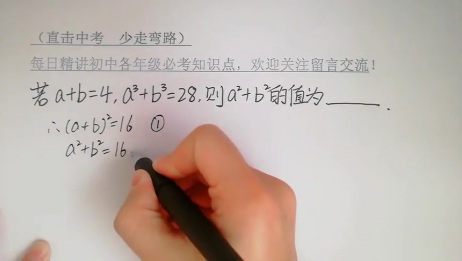 （直击中考 少走弯路）
每日精讲初中各年级必考知识点，欢迎关注留言交流！
若a+b=4,a³+b³=28,则a²+b²的值为____.
∴(a+b)²=16 ①
a²+b²=16